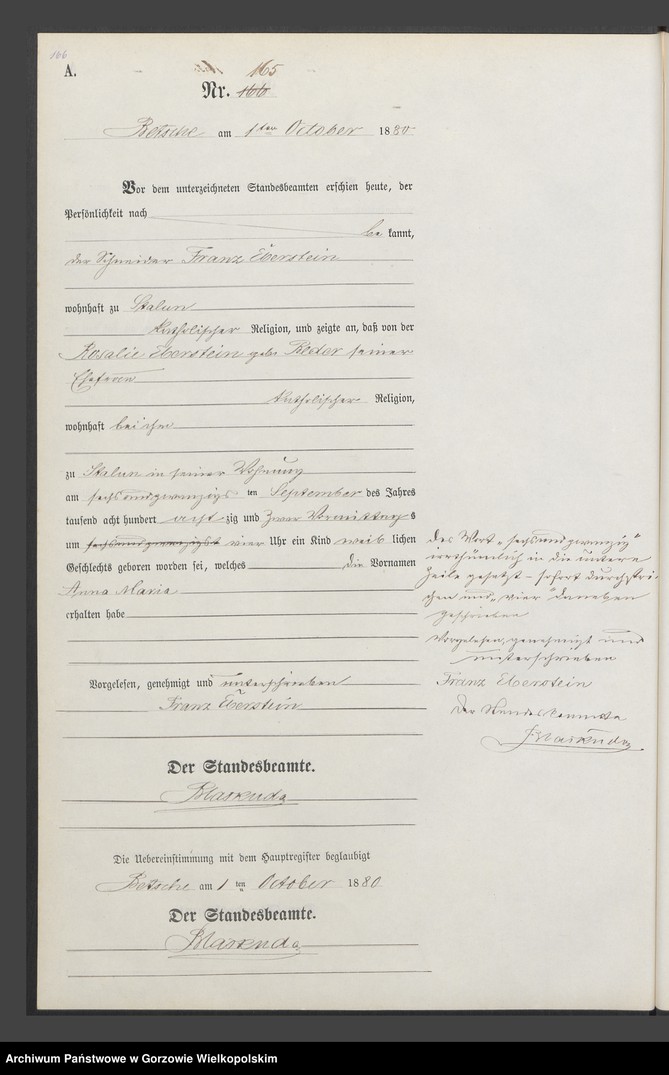 166
A.
165
Nr. 166
Betsche am 1ten October 1880
Vor dem unterzeichneten Standesbeamten erschien heute, der
Persönlichkeit nach
be kannt,
der Schneider Franz Eberstein
wohnhaft zu Stalun
katholischer Religion, und zeigte an, daß von der
Rosalie Eberstein geb. Reder seiner
Ehefrau
katholischer Religion,
wohnhaft bei ihm
zu Stalun in seiner Wohnung
am sechsundzwanzigs ten September des Jahres
tausend acht hundert acht zig und Vormittag s
um sechsundzwanzigst vier Uhr ein Kind weib lichen
Geschlechts geboren worden sei, welches die Vornamen
Anna Maria
erhalten habe
Vorgelesen, genehmigt und unterschrieben
Franz Eberstein
Der Standesbeamte.
Die Uebereinstimmung mit dem Hauptregister beglaubigt
Betsche am 1 ten October 1880
Der Standesbeamte.
das Wort „sechsundzwanzig"
irrthümlich in die untere
Zeile gesetzt – sofort durchstri-
chen und „vier" daneben
geschrieben
Vorgelesen, genehmigt und
unterschrieben
Franz Eberstein
Der Standesbeamte
Archiwum Państwowe w Gorzowie Wielkopolskim